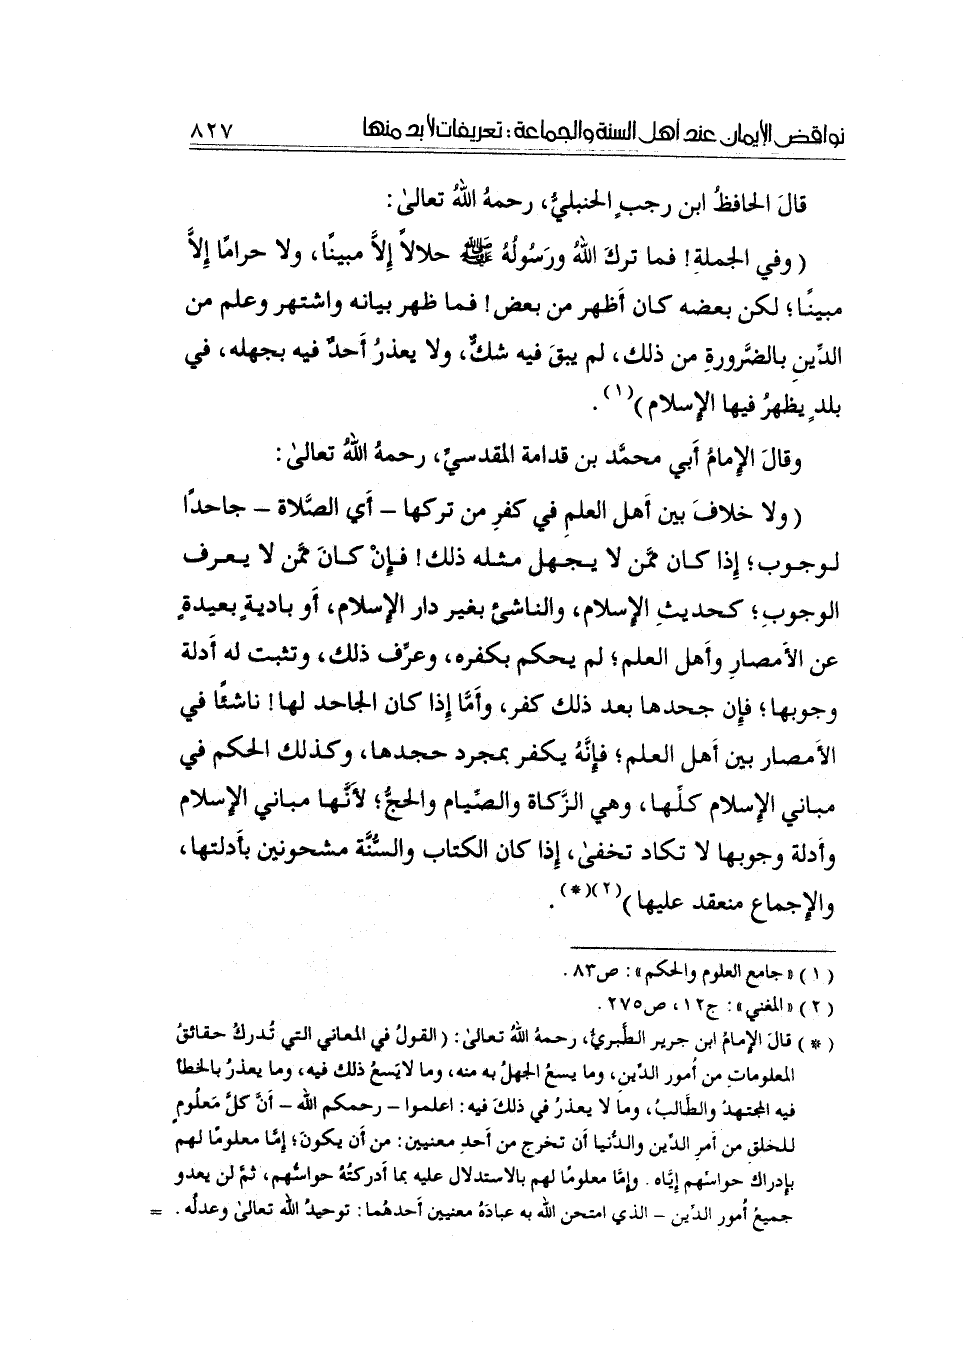 نواقض الإيمان عند أهل السنة والجماعة : تعريفات لابد منها ٨٢٧
قالَ الحافظُ ابن رجبٍ الحنبليُّ، رحمهُ اللهُ تعالىٰ :
( وفي الجملةِ! فما تركَ اللهُ ورَسُولُهُ ﷺ حلالاً إِلاَّ مبينًا، ولا حرامًا إِلاَّ
مبينًا؛ لكن بعضه كان أظهر من بعض! فما ظهر بيانه واشتهر وعلم من
الدِّينِ بالضَّرورةِ من ذلك، لم يبقَ فيه شكٌّ، ولا يعذرُ أحدٌ فيه بجهله، في
بلدٍ يظهرُ فيها الإسلام )(١) .
وقالَ الإمامُ أبي محمَّد بن قدامة المقدسيِّ، رحمهُ اللهُ تعالىٰ :
( ولا خلافَ بين أهل العلمِ في كفرِ من تركها - أي الصَّلاة - جاحدًا
لوجوب؛ إذا كان ممَّن لا يجهل مثله ذلك! فإنْ كانَ ممَّن لا يعرف
الوجوبِ؛ كحديثِ الإسلام، والناشئ بغير دار الإسلام، أو باديةٍ بعيدةٍ
عن الأمصارِ وأهل العلم؛ لم يحكم بكفره، وعرِّف ذلك، وتثبت له أدلة
وجوبها؛ فإن جحدها بعد ذلك كفر، وأمَّا إذا كان الجاحد لها! ناشئًا في
الأمصار بين أهل العلم؛ فإنَّهُ يكفر بمجرد حجدها، وكذلك الحكم في
مباني الإسلام كلِّها، وهي الزَّكاة والصِّيام والحجُّ؛ لأنَّها مباني الإسلام
وأدلة وجوبها لا تكاد تخفىٰ، إذا كان الكتاب والسُّنَّة مشحونين بأدلتها،
والإجماع منعقد عليها )(٢)(*) .
( ١ ) « جامع العلوم والحكم » : ص٨٣ .
( ٢ ) « المغني » : ج١٢، ص٢٧٥ .
( * ) قالَ الإمامُ ابن جرير الطَّبريُّ، رحمهُ اللهُ تعالىٰ : ( القولُ في المعاني التي تُدركُ حقائقُ
المعلوماتِ من أمور الدِّينِ، وما يسعُ الجهلُ به منه، وما لايَسعُ ذلك فيه، وما يعذرُ بالخطأ
فيه المجتهدُ والطَّالبُ، وما لا يعذرُ في ذلكَ فيه : اعلموا - رحمكم الله - أنَّ كلَّ مَعلُومٍ
للخلق من أمرِ الدِّينِ والدُّنيا أن تخرج من أحدِ معنيين : من أن يكونَ؛ إمَّا معلومًا لهم
بإدراك حواسِّهم إيَّاه . وإمَّا معلومًا لهم بالاستدلال عليه بما أدركتهُ حواسُّهم، ثمَّ لن يعدو
جميعُ أمور الدِّين - الذي امتحن الله به عبادَهُ معنيين أحدهُما : توحيدُ الله تعالىٰ وعدلُه . =